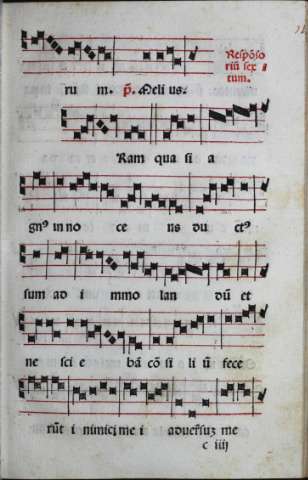 Respōso
riū sex
tum.
ru m. p̄. Meli us.
Ram qua si a
gnꝰ in no ce ns du ctꝰ
sum ad i mmo lan dū et
ne sci e bā cō si li ū fece
rūt i nimici me i aduersuz me
c iiij